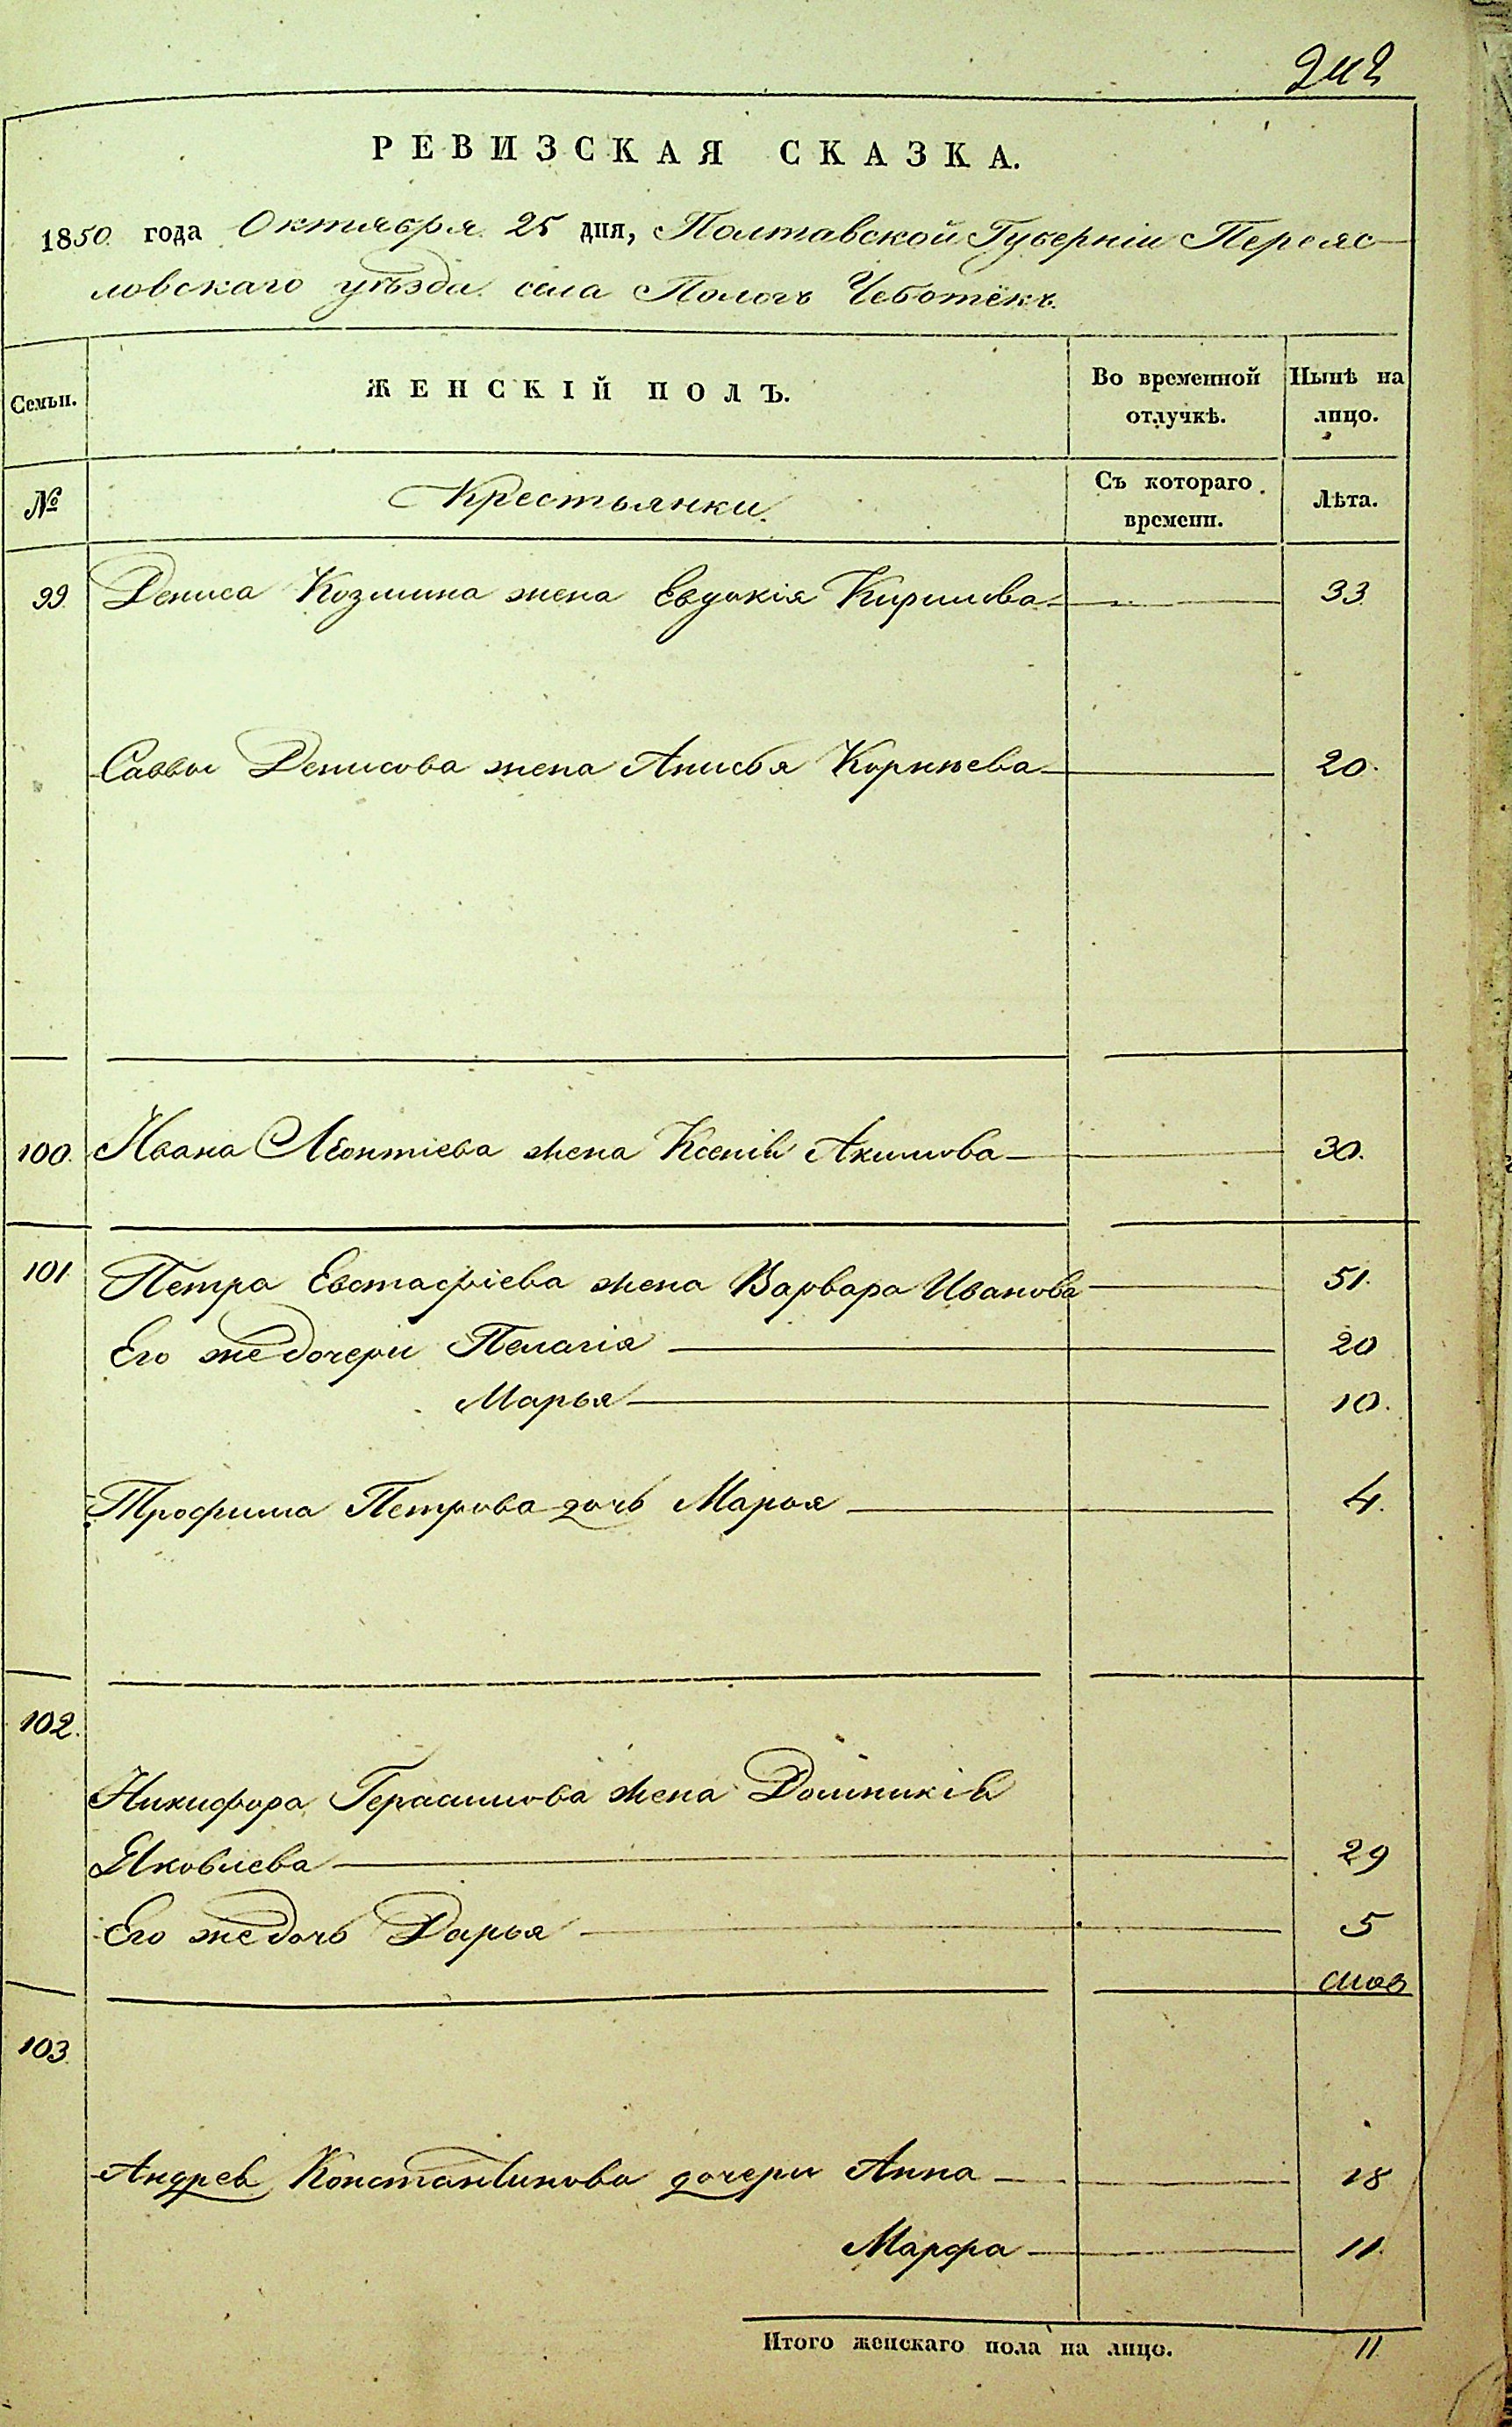 242
РЕВИЗСКАЯ СКАЗКА.
1850. года Октября 25 дня, Полтавской Губерніи Переяс-
ловскаго уѣзда села Пологъ Чеботёкъ.
Семьи. ЖЕНСКІЙ ПОЛЪ. Во временной отлучкѣ. Нынѣ на лицо.
№ Крестьянки. Съ котораго времени. Лѣта.
99 Дениса Козмина жена Евдокія Кирилова 33
Саввы Денисова жена Анисья Корнѣева 20.
100. Ивана Леонтіева жена Ксенія Акимова 30.
101 Петра Евстафіева жена Варвара Иванова 51.
Его же дочери Пелагія 20
Марья 10.
Трофима Петрова дочь Марья 4.
102. Никифора Герасимова жена Домникія
Яковлева 29
Его же дочь Дарья 5
103. Андрея Константинова дочери Анна 18
Марфа 11.
Итого женскаго пола на лицо. 11